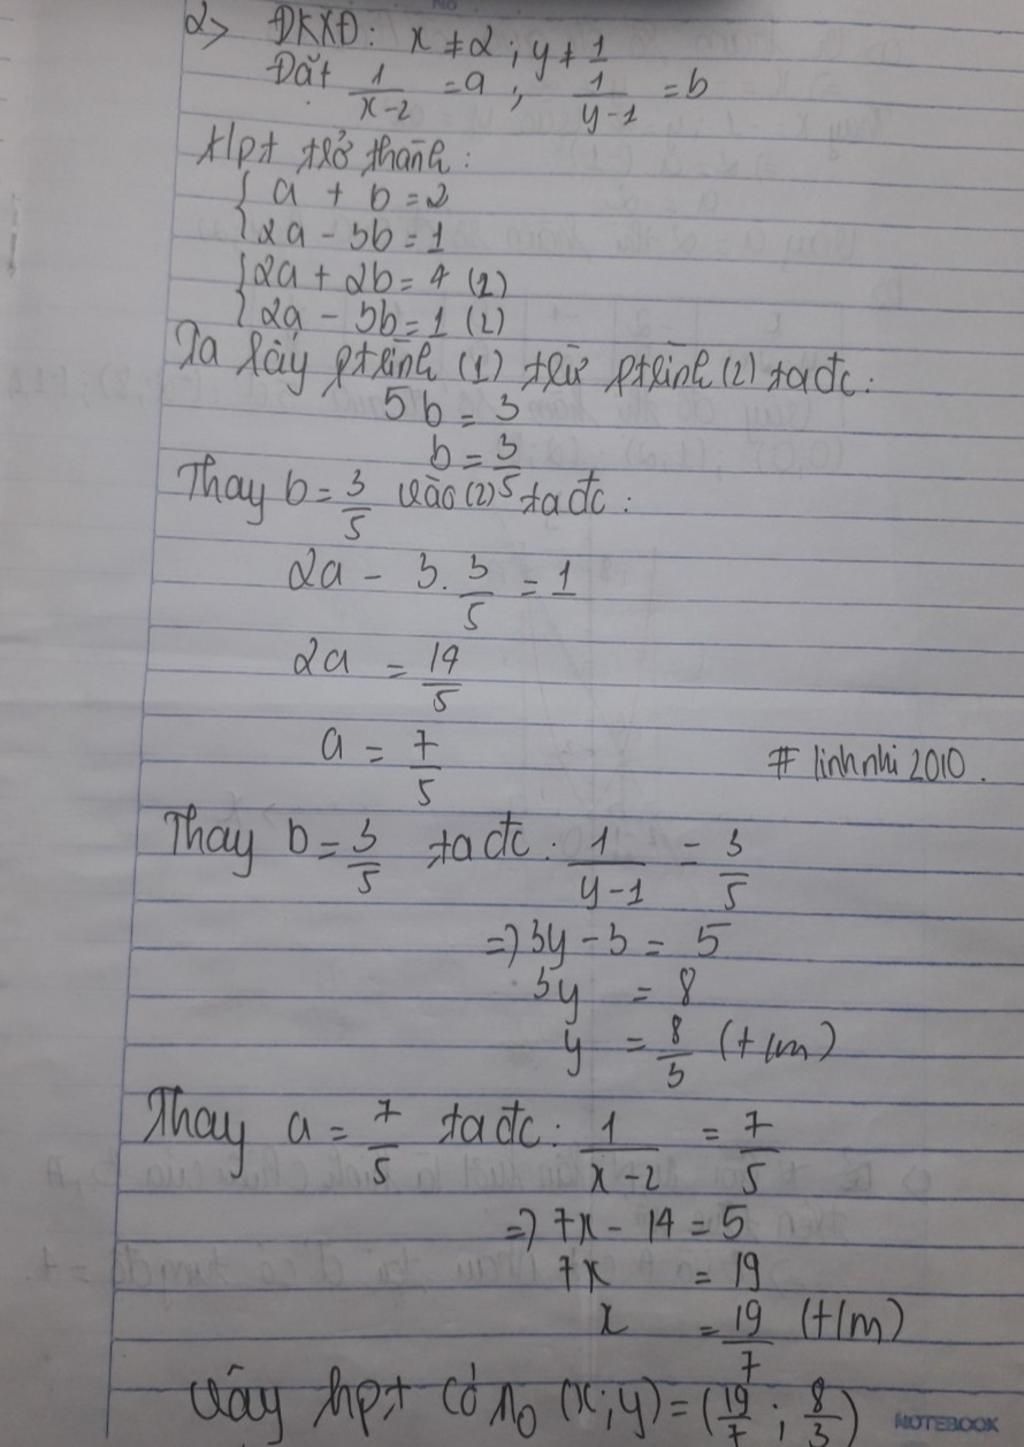 2> ĐKXĐ: x ≠ 2 ; y ≠ 1
Đặt 1/(x-2) = a ; 1/(y-1) = b
Hpt trở thành:
{ a + b = 2
{ 2a - 3b = 1
{ 2a + 2b = 4 (1)
{ 2a - 3b = 1 (2)
Ta lấy ptrình (1) trừ ptrình (2) ta đc:
5b = 3
b = 3/5
Thay b = 3/5 vào (2) ta đc:
2a - 3. 3/5 = 1
2a = 14/5
a = 7/5
# linhnhi 2010.
Thay b = 3/5 ta đc: 1/(y-1) = 3/5
=> 3y - 3 = 5
3y = 8
y = 8/3 (t/m)
Thay a = 7/5 ta đc: 1/(x-2) = 7/5
=> 7x - 14 = 5
7x = 19
x = 19/7 (t/m)
Vậy hpt có n0 (x;y) = (19/7 ; 8/3)
NOTEBOOK